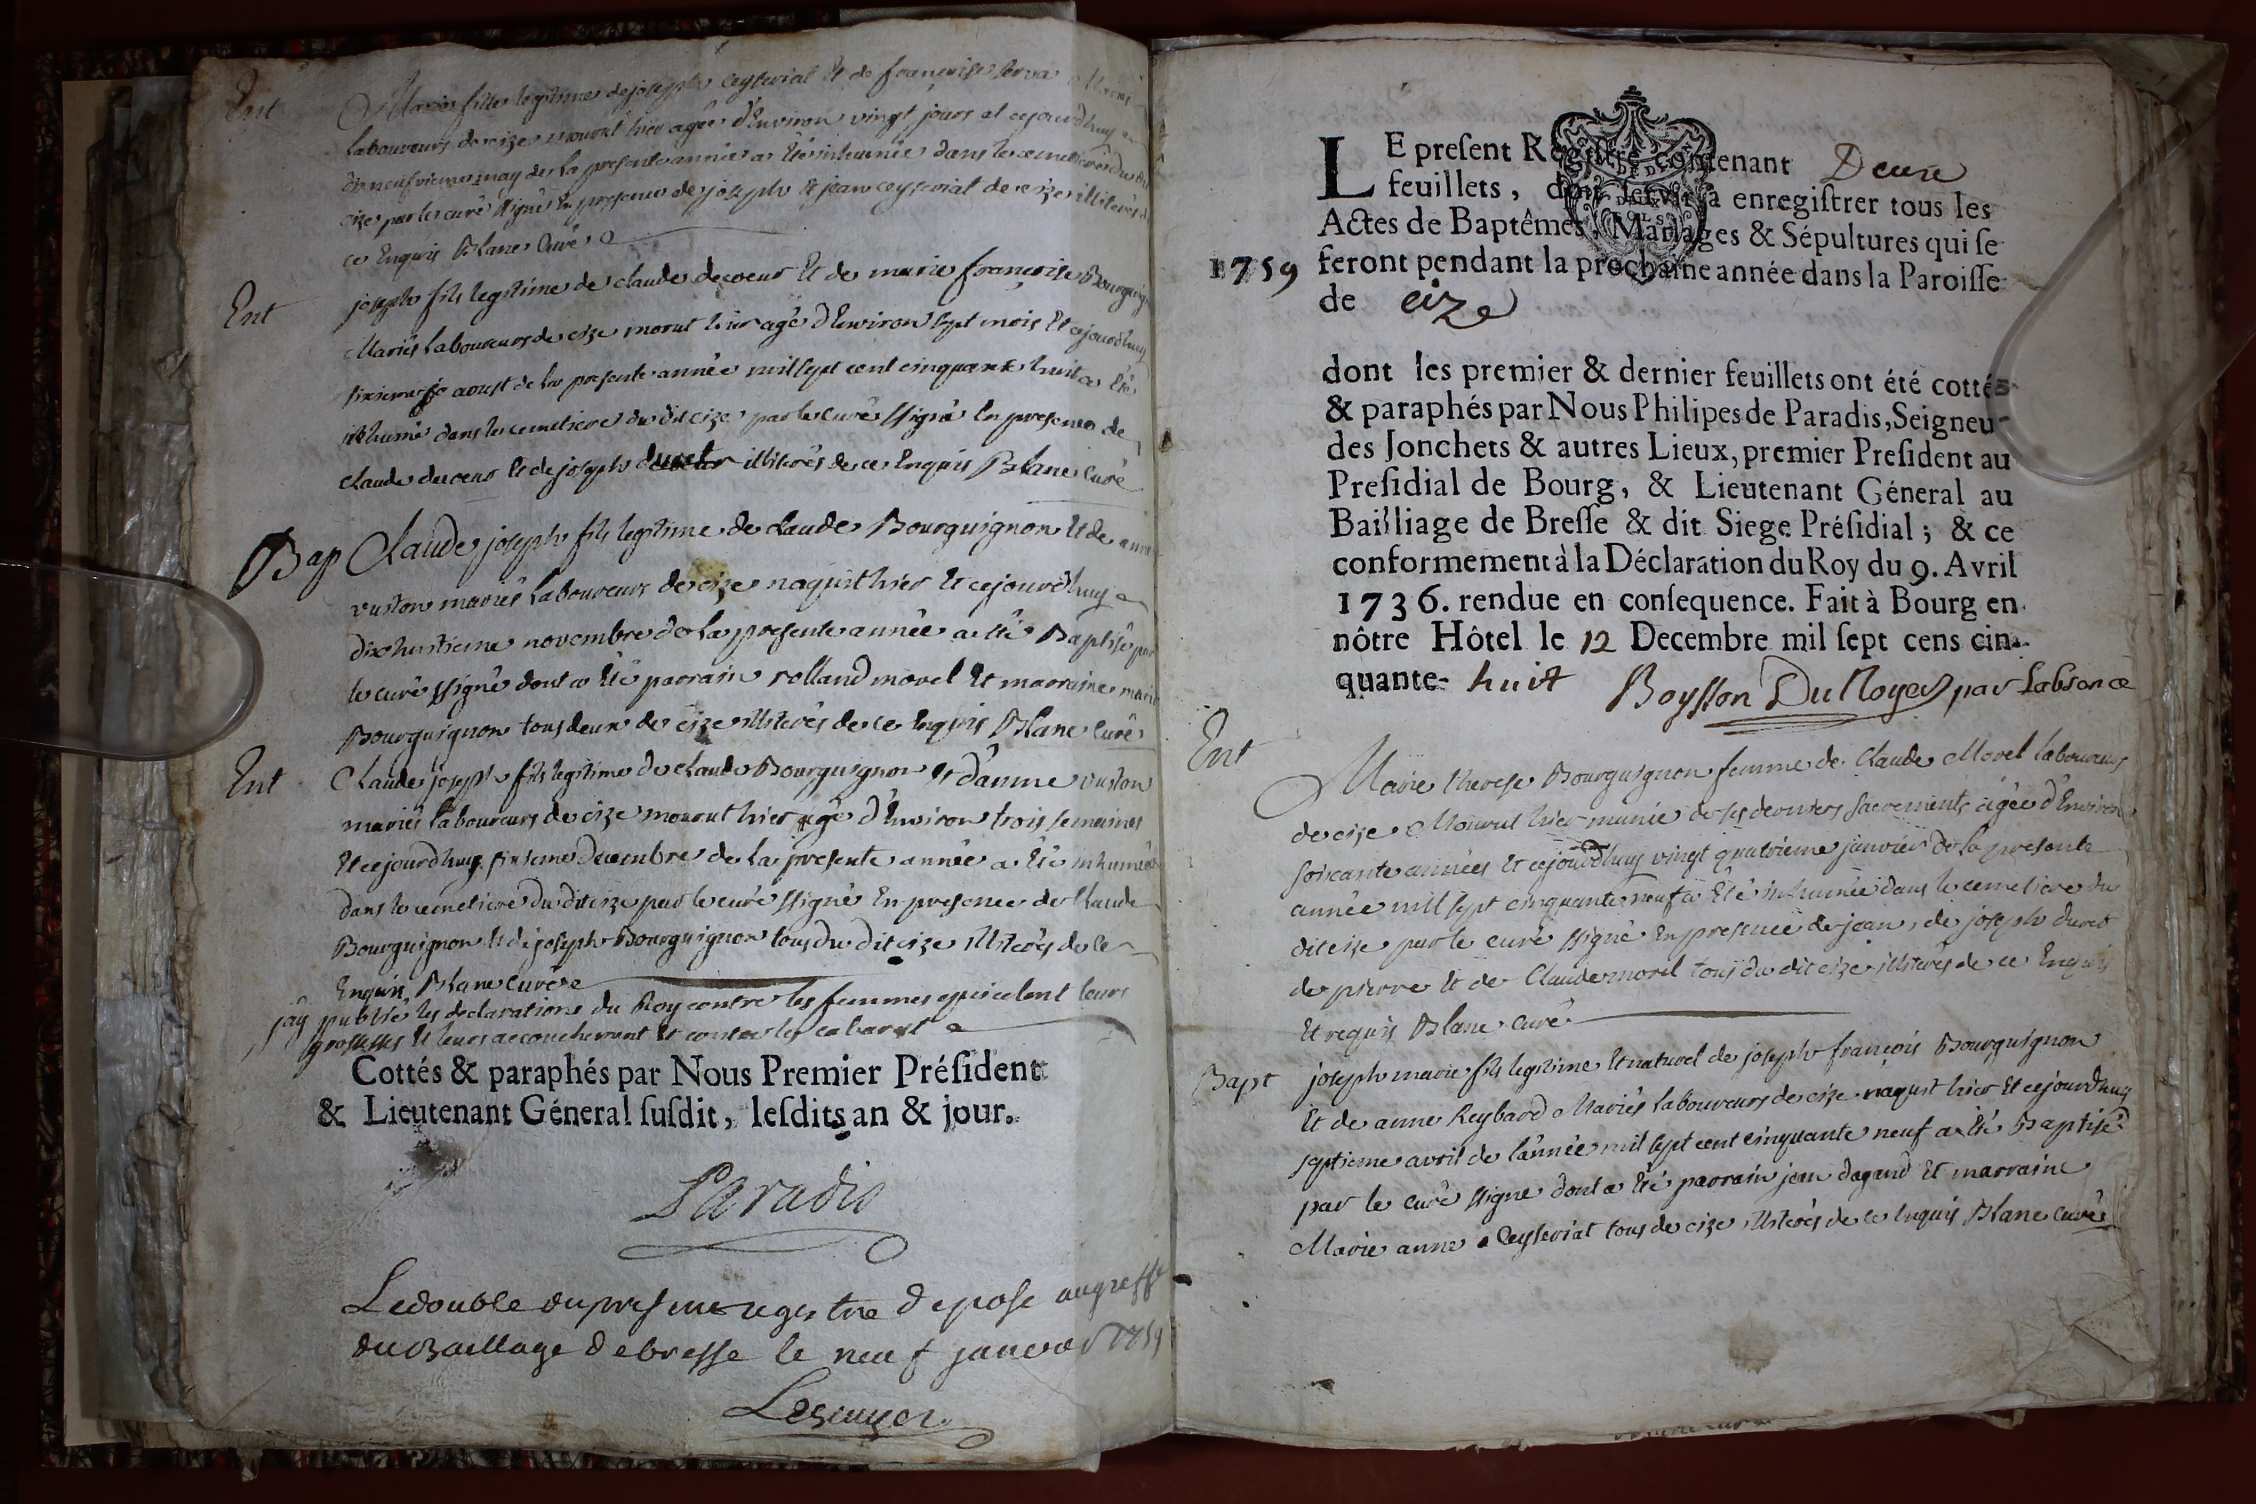 Ent
Marie fille legitime de joseph ceyseriat et de francoise
laboureurs de cize mourut hier agée d'Environ vingt jours et cejourdhuy
dixneufvieme may de la presente année a été inhumée dans le cemetiere du dit
cize par le curé ssigné En presence de joseph et jean ceyseriat de cize illiterés de
ce Enquis Blanc Curé
Ent
joseph fils legitime de claude decoeur et de marie francoise Bourguignon
Mariés laboureurs de cize morut hier agé d'Environ sept mois Et cejourdhuy
sixieme aoust de la presente année mil sept cent cinquante huit a été
inhumé dans le cemetiere du dit cize par le curé ssigné En presence de
claude decoeur et de joseph illiterés de ce Enquis Blanc Curé
Bap Claude joseph fils legitime de claude Bourguignon et de anne
vuiton mariés laboureurs de cize naquit hier et cejourdhuy
dixhuitieme novembre de la presente année a été Baptisé par
le curé ssigné dont a été parrain rolland morel et marraine marie
Bourguignon tous deux de cize illiterés de ce Enquis Blanc Curé
Ent
Claude joseph fils legitime de claude Bourguignon et d'anne vuiton
mariés laboureurs de cize mourut hier agé d'Environ trois semaines
Et cejourdhuy sixieme Decembre de la presente année a été inhumé
dans le cemetiere du dit cize par le curé ssigné En presence de Claude
Bourguignon et de joseph Bourguignon tous du dit cize illiterés de ce
Enquis Blanc Curé
jay publié les declarations du Roy contre les femmes qui celent leurs
grossesses et leurs accouchement et contre les cabaret
Cottés & paraphés par Nous Premier Préſident
& Lieutenant Géneral ſuſdit, leſdits an & jour.
Paradis
Le double du present registre depose au greffe
du Bailliage de bresse le neuf janvier 1759
LE preſent Regiſtre contenant Deux
feuillets, doit ſervir à enregiſtrer tous les
Actes de Baptêmes, Mariages & Sépultures qui ſe
1759 feront pendant la prochaine année dans la Paroiſſe
de cize
dont les premier & dernier feuillets ont été cottés
& paraphés par Nous Philipes de Paradis, Seigneur
des Jonchets & autres Lieux, premier Preſident au
Preſidial de Bourg, & Lieutenant Géneral au
Bailliage de Breſſe & dit Siege Préſidial ; & ce
conformement à la Déclaration du Roy du 9. Avril
1736. rendue en conſequence. Fait à Bourg en
nôtre Hôtel le 12 Decembre mil ſept cens cin-
quante- huit Boysson Du Noyer par Labsence
Ent
Marie therese Bourguignon femme de Claude Morel laboureur
de cize Mourut hier munie de ses derniers sacrements agée d'Environ
soixante années et cejourdhuy vingt quatrieme janvier de la presente
année mill sept cinquante neuf a été inhumée dans le cemetiere du
dit cize par le curé ssigné En presence de jean, de joseph duret
de pierre et de Claude morel tous du dit cize illiterés de ce Enquis
Et requis Blanc Curé
Bapt
joseph marie fils legitime et naturel de joseph françois Bourguignon
Et de anne Reybard Mariés laboureurs de cize naquit hier et cejourdhuy
septieme avril de l'année mil sept cent cinquante neuf a été Baptisé
par le curé ssigné dont a été parrain jean dagand et marraine
Marie anne Ceyseriat tous de cize illiterés de ce Enquis Blanc Curé